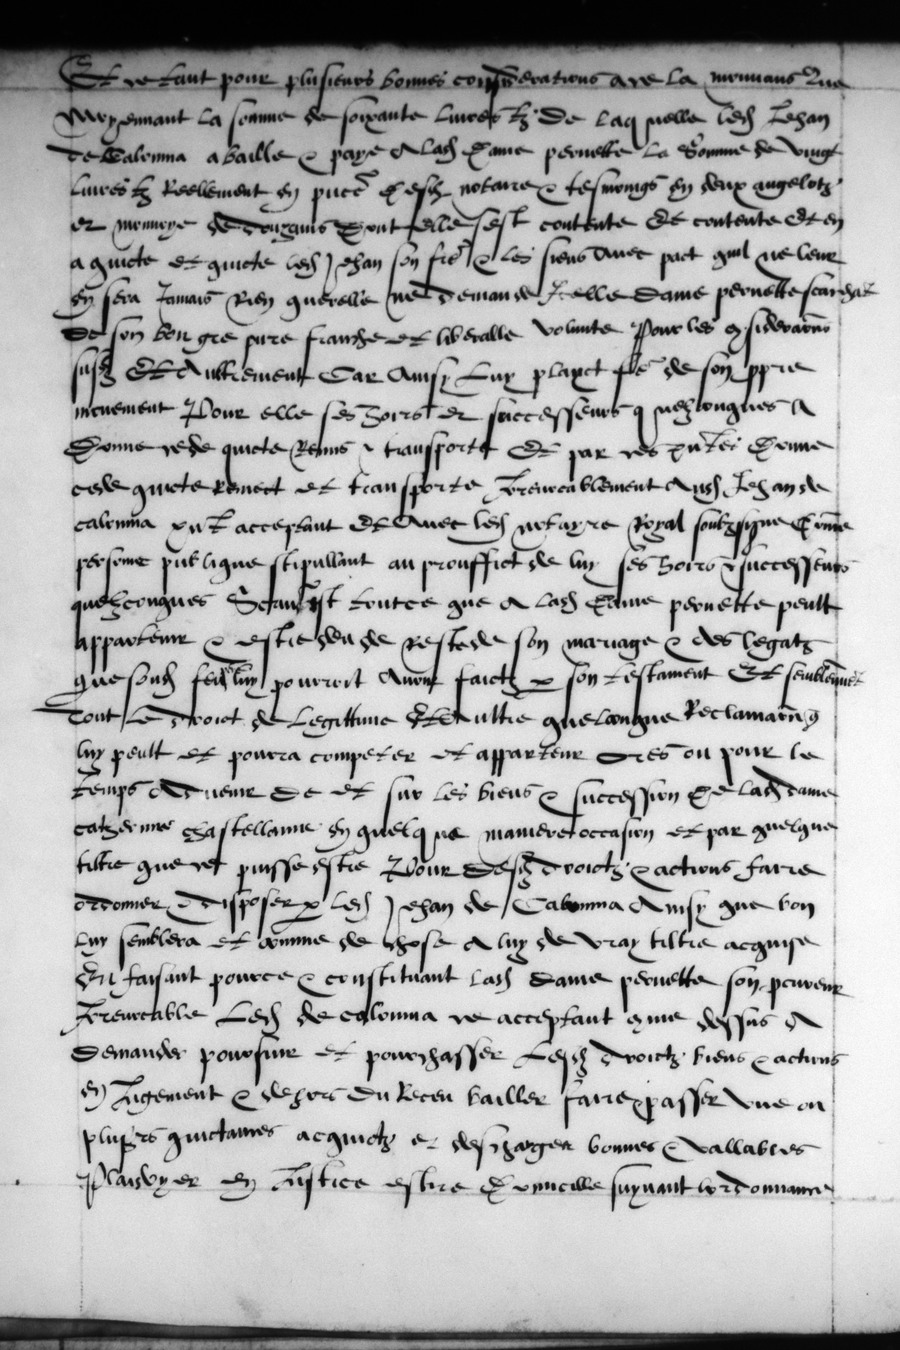 Et ce tant pour plusieurs bonnes considerations a ce la mouvans que
Moyennant la somme de soixante livres tz de laquelle led Jehan
de Calonna a baille & paye a lad dame pernette la somme de vingt
livres tz Reellement en pnce desd notaire & tesmoings en deux angelotz
et monnoye de douzains dont elle sest contente Et contente Et en
a quicte et quicte led Jehan son frē & les siens Avec pact quil ne leur
en sera Jamais Rien querelle ne demande Icelle dame pernette
de son bon gre pure franche et liberalle volunte Pour les gsiderations
susd Et Aultrement Car Ainsy luy plaict fē de son ppre
mouvement Pour elle ses hoirs et successeurs quelzconques A
Donne cede quicte Remis & transporte Et par ces pntes Donne
cede quicte Remect et transporte Irrevocablement Aud Jehan de
calonna pnt acceptant Et Avec led notayre Royal soubzsigne gme
persone publique stipullant au prouffict de luy ses hoirs & successeurs
quelzconques tout ce que a lad Dame pernette peult
appartenir & estre deu de Reste de son mariage & des legatz
que sond feu luy pourroit Avoir faictz p son testament Et semblement
tout le droict de legittime Et Aultre quelconque Reclamaon q
luy peult et pourra competer et appartenir ores ou pour le
temps Advenir de et sur les biens & succession de lad dame
catherine chastellanne en quelque maniere occasion et par quelque
tiltre que ce puisse estre Pour desd droictz & actions faire
ordonner & disposer p led Jehan de Calonna Ainsy que bon
luy semblera et comme de chose A luy de vray tiltre acquise
En faisant pource & constituant lad dame pernette son pcureur
Irrevocable Led de calonna ce acceptant gme dessus A
Demander poursuir et pourchasser Lesd droictz biens & actions
en Jugement & dehors Du Receu bailler faire & passer une ou
plusrs quictances acquictz et descharges bonnes & vallables
Plaidoyer en Justice eslire Domicille suyvant lordonnance